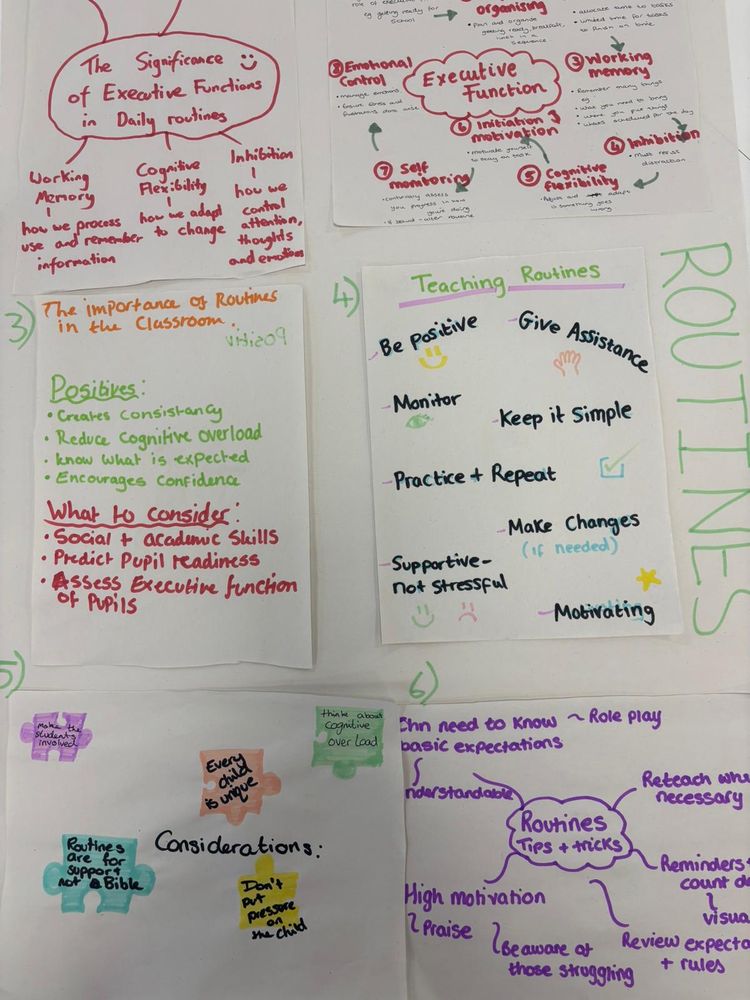 The Significance
of Executive Functions
in Daily routines
Working
Memory
how we process
use and remember
information
Cognitive
Flexibility
how we adapt
to change
Inhibition
how we
control
attention,
thoughts
and emotions
eg getting ready for
School
organising
• Plan and organise
getting ready, breakfast,
lunch in a
sequence
• allocate time to tasks
• limited time for tasks
to finish on time
Executive
Function
③ Working
memory
• Remember many things
eg.
• what you need to bring
• where you put things
• whats scheduled for the day
④ Inhibition
• Must resist
distraction
⑤ Cognitive
flexibility
• Adjust and adapt
is something goes
wrong
⑥ Initiation &
motivation
• motivate yourself
to stay on task
⑦ Self
monitoring
you progress in how
your doing
⑧ Emotional
Control
• manage emotions
ROUTINES
3)
The importance of Routines
in the Classroom.
Positiv
Positives:
• Creates consistancy
• Reduce cognitive overload
• Know what is expected
• Encourages confidence
What to consider:
• Social + academic Skills
• Predict Pupil readiness
• Assess Executive function
of Pupils
4)
Teaching Routines
- Be positive
- Give Assistance
- Monitor
- Keep it Simple
- Practice + Repeat
- Make Changes
(if needed)
- Supportive -
not stressful
- Motivating
5)
Make the
students
involved
think about
Cognitive
over load
Every
child
is unique
Considerations:
Routines
are for
support
not a Bible
Don't
put
pressure
on
the child
6)
Chn need to know ~ Role play
basic expectations
understandable
Routines
Tips + tricks
Reteach whe
necessary
Reminders +
count do
visua
Review expecta
+ rules
High motivation
Praise
Be aware of
those struggling